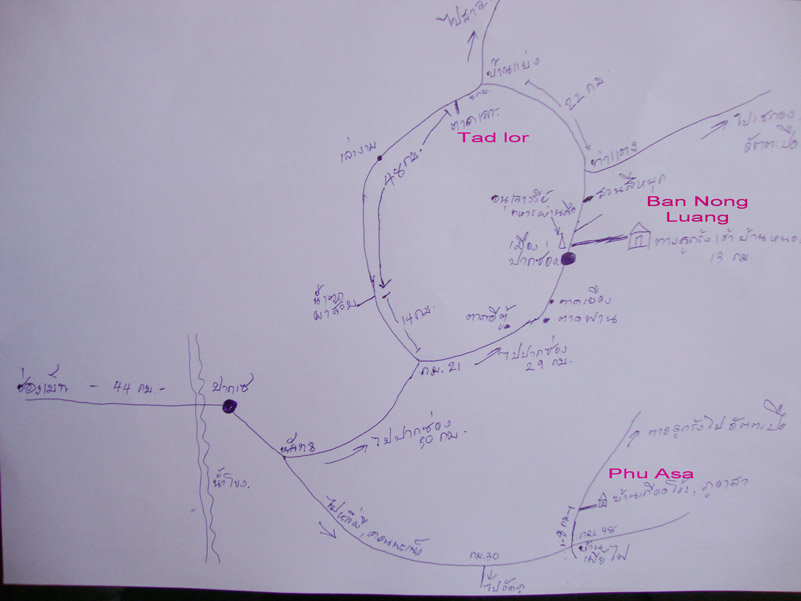 ไปสาละ
บ้านแบ่ง
22 กม.
ตาดเลาะ
Tad lor
ไปเซกอง
อัตตะปือ
เล่างาม
48 กม.
ท่าแตง
สวนสีหนุก
อนุเสาวรีย์
ทหารผ่านศึก
Ban Nong
Luang
เมือง
ปากซ่อง
ทางลูกรัง เข้า บ้านหนอง
13 กม.
น้ำตก
ผาส้วม
14 กม.
ตาดเยือง
ตาดฟาน
ตาดอีตู้
กม. 21
ไปปากซ่อง
29 กม.
ช่องเม็ก - 44 กม. -
ปากเซ
หลัก 8
ไปปากซ่อง
50 กม.
น้ำโขง
ทางลูกรังไป อัตตะปือ
Phu Asa
บ้านเกียดโง้ง, ภูอาสา
ไปหลี่ผี, คอนพะเพ็ง
กม. 30
ไปวัดภู
กม. 48
บ้าน